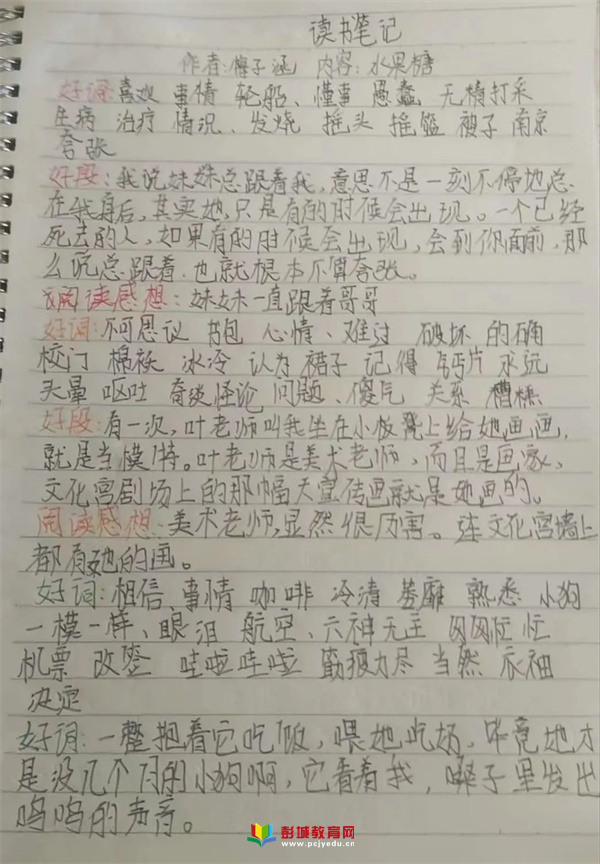 读书笔记
作者:梅子涵 内容:水果糖
好词:喜欢 事情 轮船、懂事 愚蠢 无精打采
生病 治疗 情况、发烧 摇头 摇篮 被子 南京
夸张
好段:我说妹妹总跟着我,意思不是一刻不停地总
在我身后,其实她,只是有的时候会出现。一个已经
死去的人,如果有的时候会出现,会到你面前,那
么说总跟着.也就根本不算夸张。
阅读感想:妹妹一直跟着哥哥
好词:不可思议 书包 心情、难过 破坏 的确
校门 棉袄 冰冷 认为 裙子 记得 钙片 永远
头晕 呕吐 奇谈怪论 问题、傻气 关系 糟糕
好段:有一次,叶老师叫我坐在小板凳上给她画画,
就是当模特。叶老师是美术老师,而且是画家、
文化宫剧场上的那幅大宣传画就是她画的。
阅读感想:美术老师,显然很厉害。连文化宫墙上
都有她的画。
好词:相信、事情 咖啡 冷清 萎靡 熟悉 小狗
一模一样、眼泪 航空、六神无主 匆匆忙忙
机票 改签 哇啦哇啦 筋疲力尽 当然 衣袖
决定
好词:一整把着它吃饭,喂她吃奶,毕竟她才
是没几个月的小狗啊,它看着我,嗓子里发出
呜呜的声音。
彭城教育网
www.pcjyedu.cn